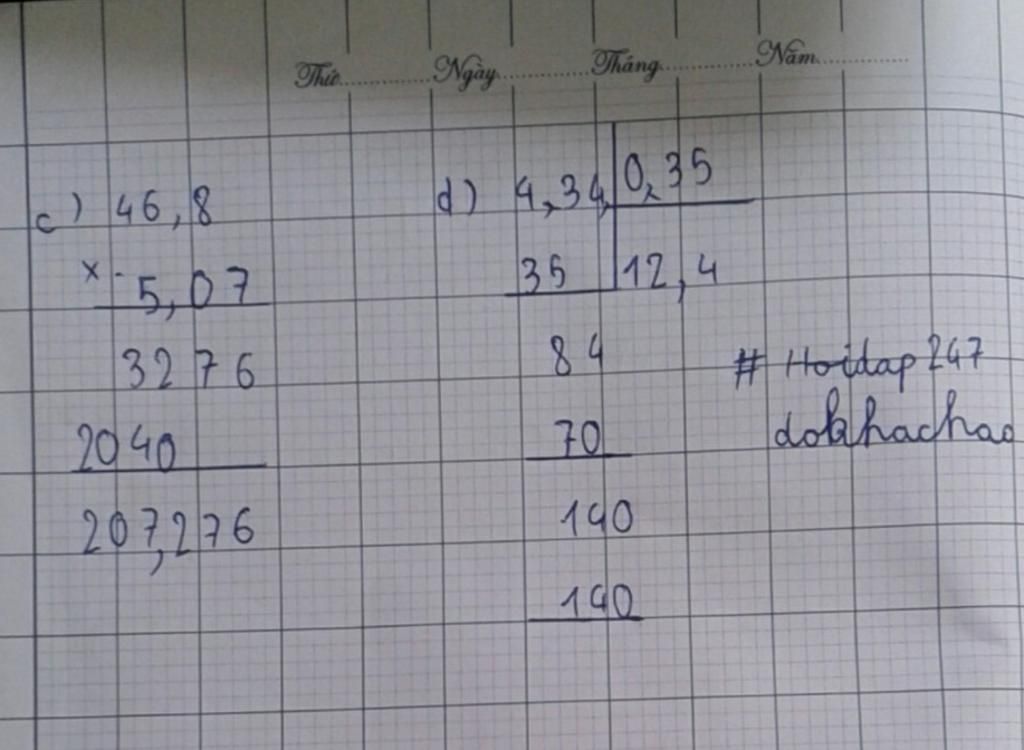 Thứ.............Ngày.............Tháng.............Năm.............
c) 46,8
x 5,07
3276
2040
207,276
d) 4,34 0,35
35 12,4
84
70
140
140
# Hoidap247
dokhachao